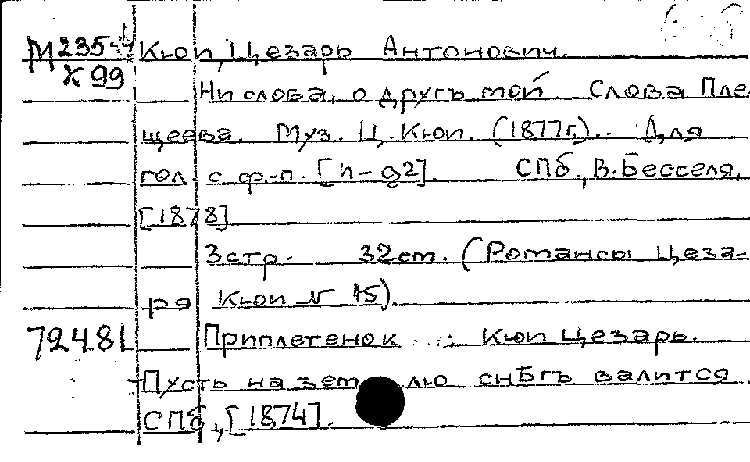 М235 Кюи, Цезарь Антонович.
К99
Ни слова, о другъ мой. Слова Пле
щеева. Муз. Ц. Кюи. (1877г.). Для
гол. с ф.-п. [h-g2]. СПб., В. Бесселя,
[1878]
3стр. 32см. (Романсы Цеза-
ря Кюи N 15).
72481 Приплетенок : Кюи Цезарь.
Пусть на землю снѣгъ валится.
СПб., [1874].